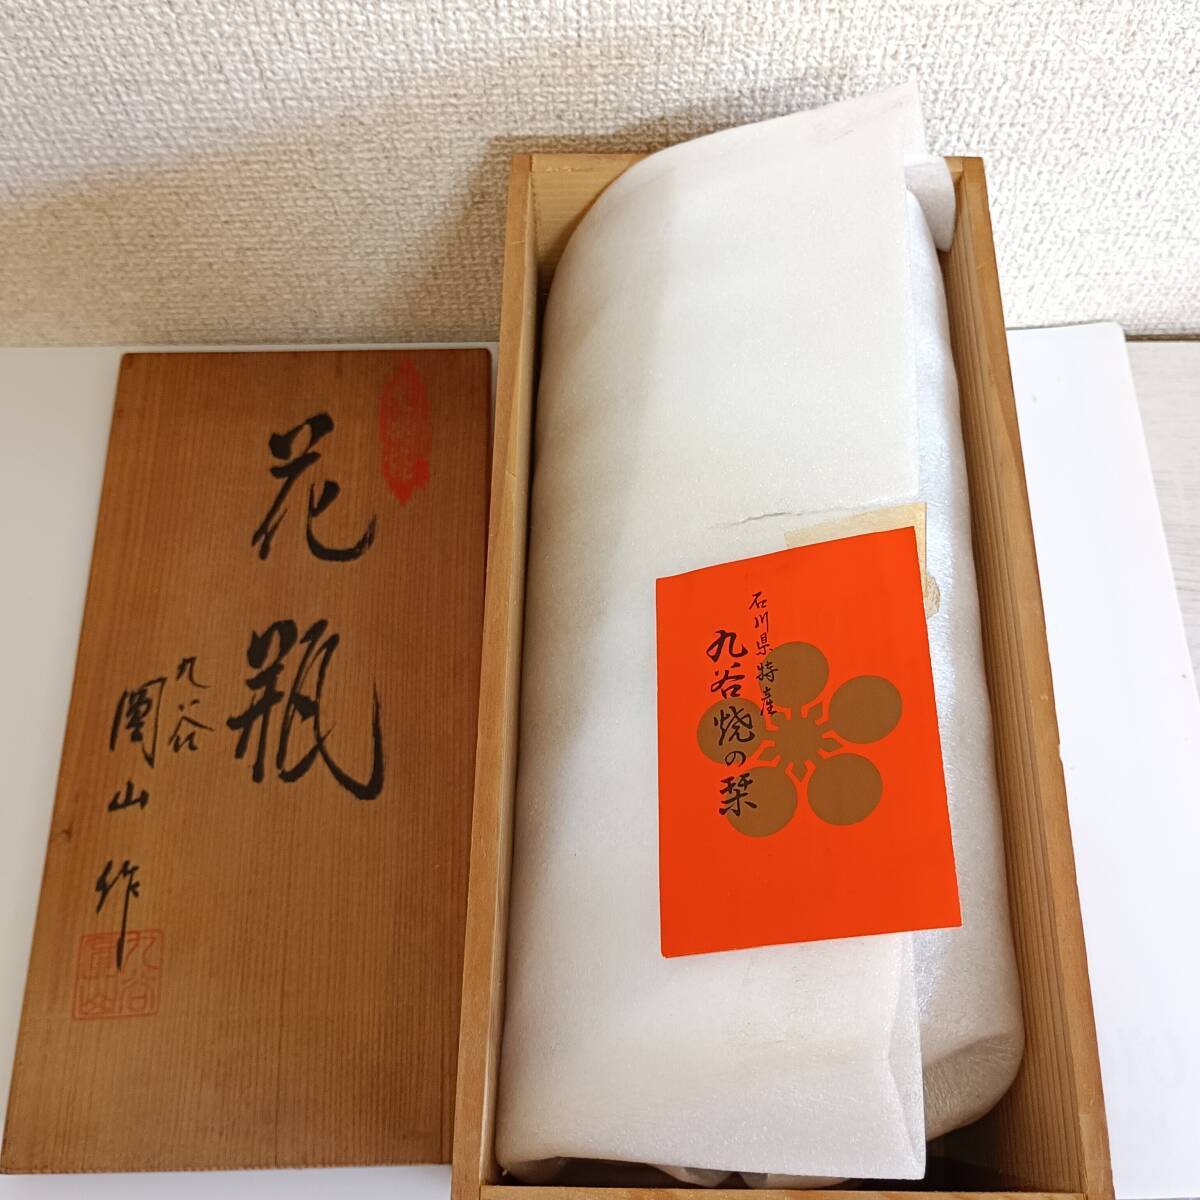 花瓶
九谷
圓山作
九谷
圓山
石川県特産
九谷焼の栞